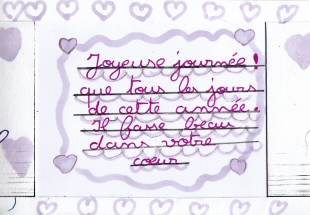 Joyeuse journée !
que tous les jours
de cette année.
Il fasse beau
dans votre
cœur